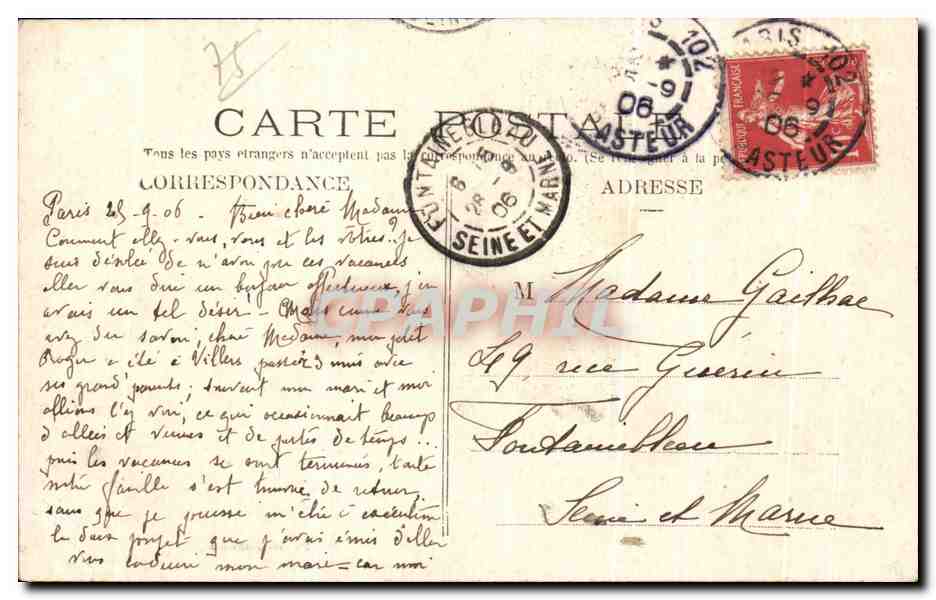 75
CARTE POSTALE
Tous les pays étrangers n'acceptent pas la correspondance au recto. (Se renseigner à la
CORRESPONDANCE
ADRESSE
PARIS 102
9
06
PASTEUR
PARIS 102
9
06
PASTEUR
REPUBLIQUE FRANÇAISE
10
FONTAINEBLEAU
6
28 - 9
06
SEINE ET MARNE
CPAPHIL
Paris 25-9-06 - Bien chère Madame
Comment allez-vous, vous et les vôtres? je
suis désolée de n'avoir pu ces vacances
aller vous dire un bonjour affectueux, j'en
avais un tel désir - Mais comme vous
avez du savoir, chère Madame, mon petit
Roger a été à Villers passer 3 mois avec
ses grands parents; souvent mon mari et moi
allions l'y voir, ce qui occasionnait beaucoup
d'allées et venues et de pertes de temps...
puis les vacances se sont terminées, toute
notre famille s'est trouvée de retour
sans que je puisse mettre à exécution
le doux projet que j'avais émis d'aller
vous conduire mon mari - car moi
M Madame Gailhac
49, rue Guérin
Fontainebleau
Seine et Marne